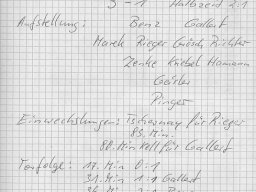 3-1 Halbzeit 2:1
Aufstellung: Benz Gallert
Marek Rieger Grösch Richter
Zenke Knebel Hamann
Geisler
Pinger
Einwechslungen: für Rieger
83. Min.
88. Min Kell für Gallert
Torfolge: 17. Min 0:1
31. Min 1:1 Gallert
2:1